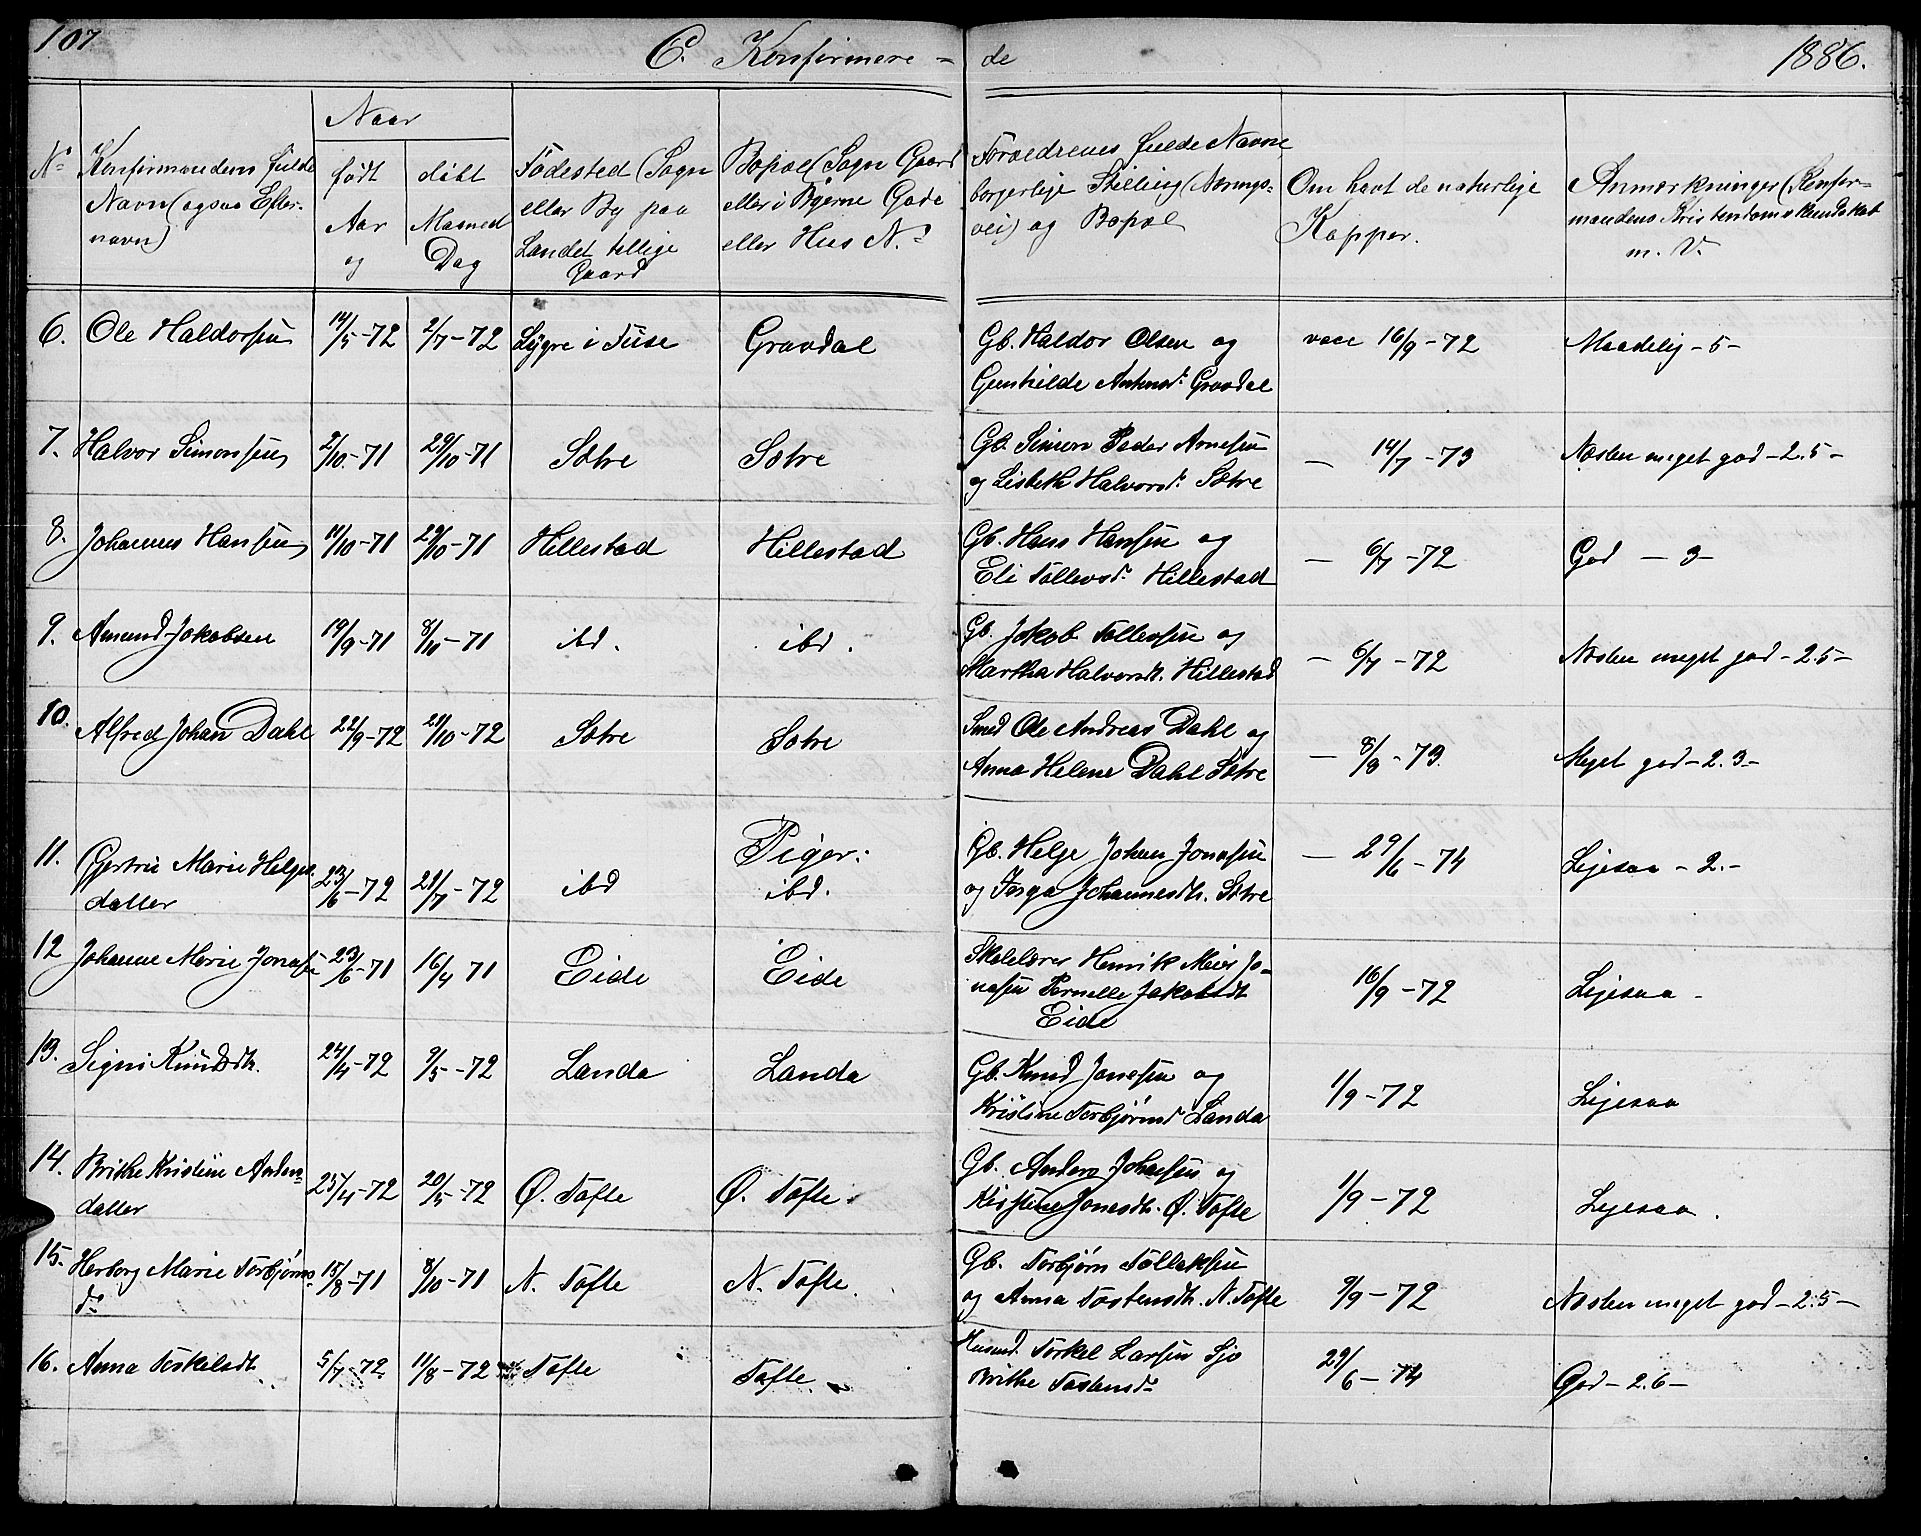 107 C. Konfirmere - de 1886.
No Konfirmandens fulde Navn (ogsaa Efternavn) Naar født døbt Aar og Maaned Dag Fødested (Sogn eller By paa Landet tillige Gaard Bopæl (Sogn Gaard eller i Byerne Gade eller Hus No Forældrenes fulde Navne borgerlige Stilling (Næringsvei) og Bopæl Om havt de naturlige Kopper. Anmærkninger (Konfirmandens Kristendomskundskab m. V.
6. Ole Haldorsen 14/5-72 2/7-72 Lygre i Tuse Gravdal Gb. Haldor Olsen og vacc 16/9-72 Maadelig -5-
Gunhilde Antonsd. Gravdal
7. Halvor Simonsen 2/10-71 29/10-71 Sætre Sætre Gb. Simon Peder Arnesen
og Lisbeth Halvorsd. Sætre — 14/7-73 Næsten meget god -2.5-
8. Johannes Hansen 11/10-71 29/10-71 Hillestad Hillestad Gb. Hans Hansen og
Eli Tollevsd. Hillestad — 6/7-72 God -3-
9. Amund Jakobsen 19/9-71 8/10-71 ibd. ibd. Gb. Jakob Tollevsen og
Martha Halvorsdt. Hillestad — 6/7-72 Næsten meget god -2.5-
10. Alfred Johan Dahl 22/9-72 21/10-72 Sætre Sætre Smed Ole Andreas Dahl og
Anna Helene Dahl Sætre — 8/8-73 Meget god -2.3-
Piger:
11. Gjertru Marie Helges- Gb. Helge Johan Jonasen — 29/6-74
datter 23/6-72 21/7-72 ibd ibd. og Inga Johannesdt. Sætre Lejesaa -2.-
12 Johanne Marie Jonasen 23/6-71 16/4 71 Eide Eide Skolelærer Henrik Meier Jo-
nasen Pernelle Jakobsdt 16/9-72 Lejesaa -
Eide
13. Signi Knudsdt. 24/4-72 9/5-72 Landa Landa Gb. Knud Jonesen og
Kristine Torbjørnsd. Landa 1/9-72 Lejesaa
14. Brithe Kristine Anders- Gb. Anders Johansen og
datter 25/4-72 20/5-72 Ø. Tofte Ø. Tofte. Kirstine Jonesdt. Ø. Tofte 1/9-72 Lejesaa.
15. Herborg Marie Torbjørns- 15/8-71 8/10-71 N. Tofte N. Tofte. Gb. Torbjørn Tollaksen
do og Anna Tostensdt. N. Tofte 9/9-72 Næsten meget god -2.5-
16. Anna Torkelsdt. 5/7-72 11/8-72 Tofte Tofte Husmd. Torkel Larsen Sjo
Brithe Tostensdr 29/6-74 God -2.6-